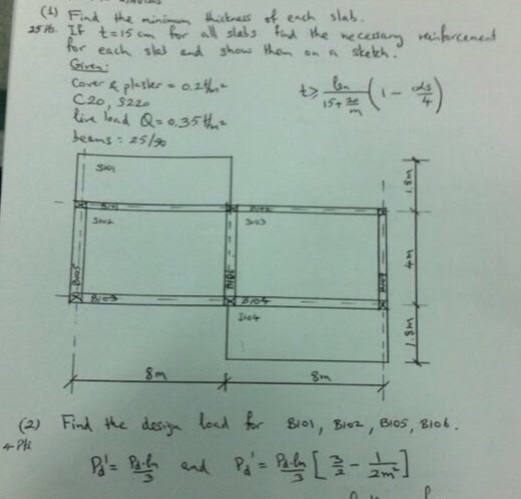 (1) Find the minimum thickness of each slab.
25 Pts. If t=15 cm for all slabs find the necessary reinforcement
for each slab and show them on a sketch.
Given:
Cover & plaster = 0.2 t/m²
C20, S220
live load Q = 0.35 t/m²
beams: 25/50
t ≥ ln / (15 + 20/m) (1 - αs/4)
S101
1.8m
B101 B102
S102 S103
4m
B105 B106
B103 B104
S104
1.8m
8m 8m
(2) Find the design load for B101, B102, B105, B106.
4 Pts
Pd' = Pd·ln/3 and Pd' = Pd·ln/3 [3/2 - 1/2m²]